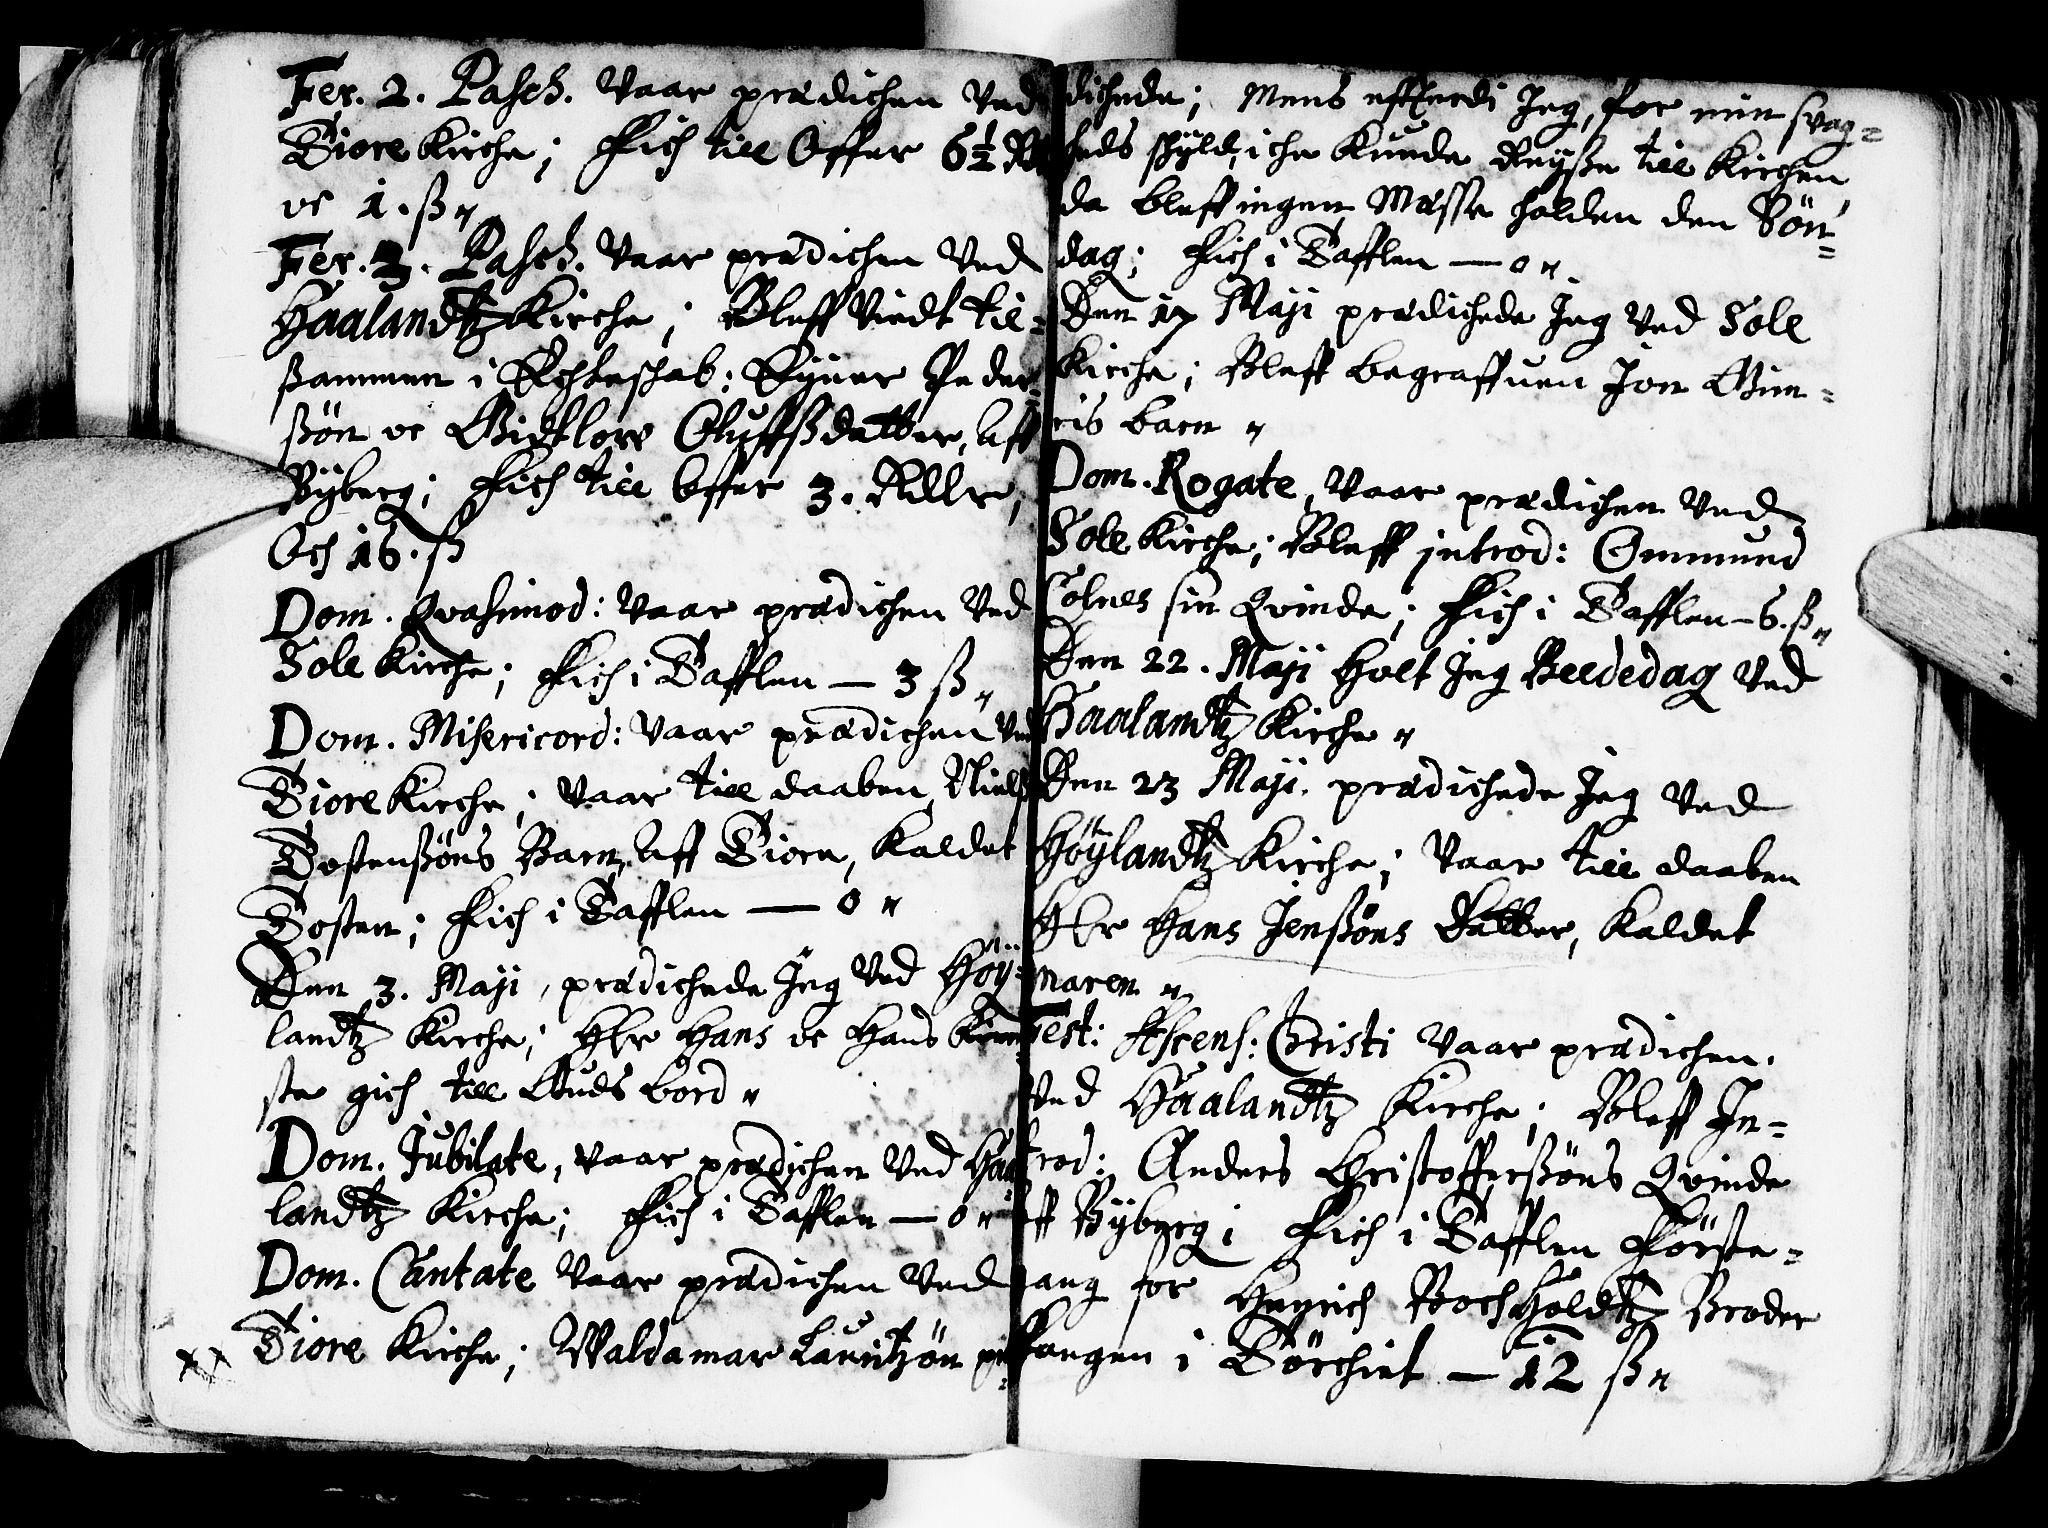 Fer. 2. Pasch. Vaar prædichen Ved
Tiore Kirche; Fich till Offer 6½ Rd
oc 1. ß "
Fer. 3. Pasch. Vaar prædichen Ved
Haalandtz Kirche; Bleff Viedt til=
ßammen i Echteskab: Ejner Peder
ßön oc Gidtlow Oluffsdatter, Aff
Byberg; Fich till Offer 3. Rdlr,
Och 16. ß
Dom. Qvasimod: Vaar prædichen Ved
Sole Kirche; Fich i Tafflen — 3 ß "
Dom. Misericord: Vaar prædichen Ved
Tiore Kirche; Vaar till daaben, Niels
Tostenßöns Barn, Aff Tiora, Kaldet
Tosten; Fich i Tafflen — 0 "
Den 3. Maji, prædichede Jeg Ved Höy=
landtz Kirche; Hr Hans oc Hans
ste gich till Guds bord "
Dom. Jubilate, Vaar prædichen Ved Haa
landtz Kirche; Fich i Tafflen — 0 "
Dom. Cantate Vaar prædichen Ved
Tiore Kirche; Waldamar Lauritzön præ
dichede; Mens effterdi Jeg, for min svag=
heds skyld, iche Kunde Reyße till Kirchen,
da bleff ingen Messe holden den Sön=
dag; Fich i Tafflen — 0 "
Den 17 Maji prædichede Jeg Ved Sole
Kirche; Bleff begraffuen Jon Gun=
ris barn "
Dom. Rogate, Vaar prædichen Ved
Sole Kirche; Bleff introd: Ommund
Tolnes sin Qvinde; Fich i Tafflen — 6. ß "
Den 22. Maji Holt Jeg Beededag Ved
Haalandtz Kirche "
Den 23 Maji. prædichede Jeg Ved
Höylandtz Kirche; Vaar till daaben
Hr Hans Jenßöns Datter, Kaldet
Maren "
Fest: Ascens: Christi Vaar prædichen.
Ved Haalandtz Kirche; Bleff In=
trod: Anders Christofferßöns Qvinde
aff Byberg; Fich i Tafflen Förste=
gang for Henrich Bochholdtz Broder
fangen i Törchiet — 12 ß "